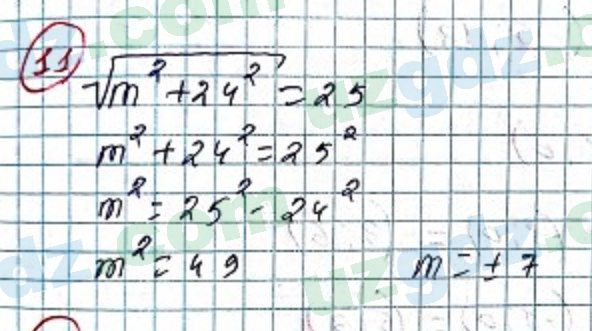 11
√m² + 24² = 25
m² + 24² = 25²
m² = 25² - 24²
m² = 49 m = ± 7
uzgdz.com